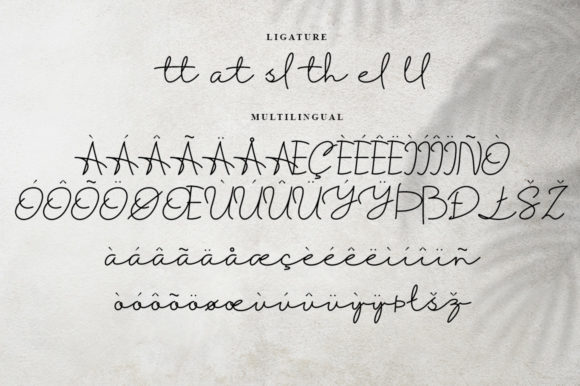 LIGATURE
tt at sl th el ll
MULTILINGUAL
ÀÁÂÃÄÅÆÇÈÉÊËÌÍÎÏÑÒ
ÓÔÕÖØŒÙÚÛÜÝŸÞßÐŁŠŽ
àáâãäåæçèéêëìíîïñ
òóôõöøœùúûüỳÿÞłšž